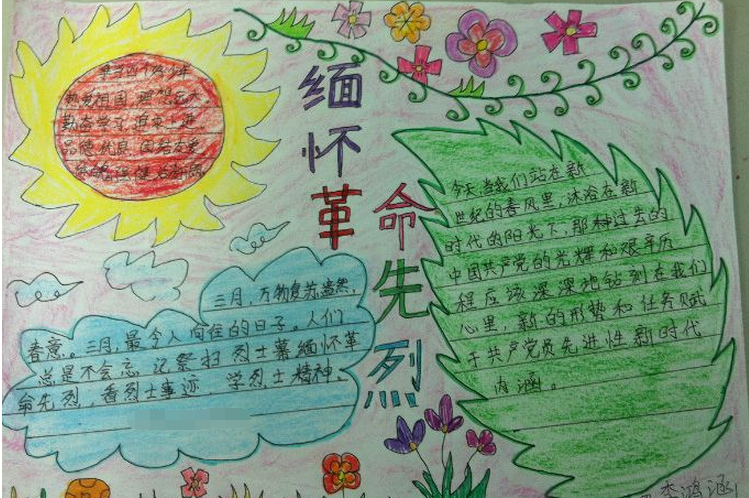 争当四个好少年
热爱祖国 理想远大
勤奋学习 追求上进
品德优良 团结友爱
体魄强健 活泼开朗
缅怀革命先烈
三月，万物复苏盎然，
春意。三月，最令人向往的日子。人们
总是不会忘记祭扫烈士墓缅怀革
命先烈，看烈士事迹，学烈士精神、
今天当我们站在新
世纪的春风里，沐浴在新
时代的阳光下，那种过去的
中国共产党的光辉和艰辛历
程应该深深地钻刻在我们
心里，新的形势和任务赋
于共产党员先进性新时代
内涵。
李鸿涵